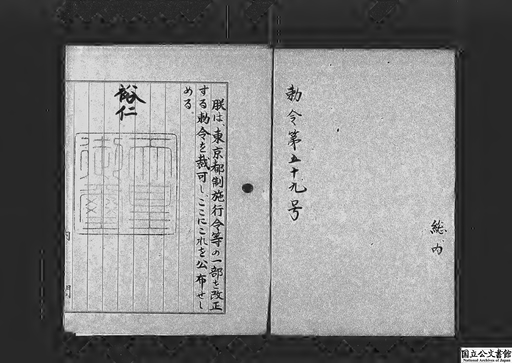 勅令第五十九号
総内
朕は、東京都制施行令等の一部を改正
する勅令を裁可し、ここにこれを公布せし
める。
裕仁
天皇御璽
国立公文書館
National Archives of Japan